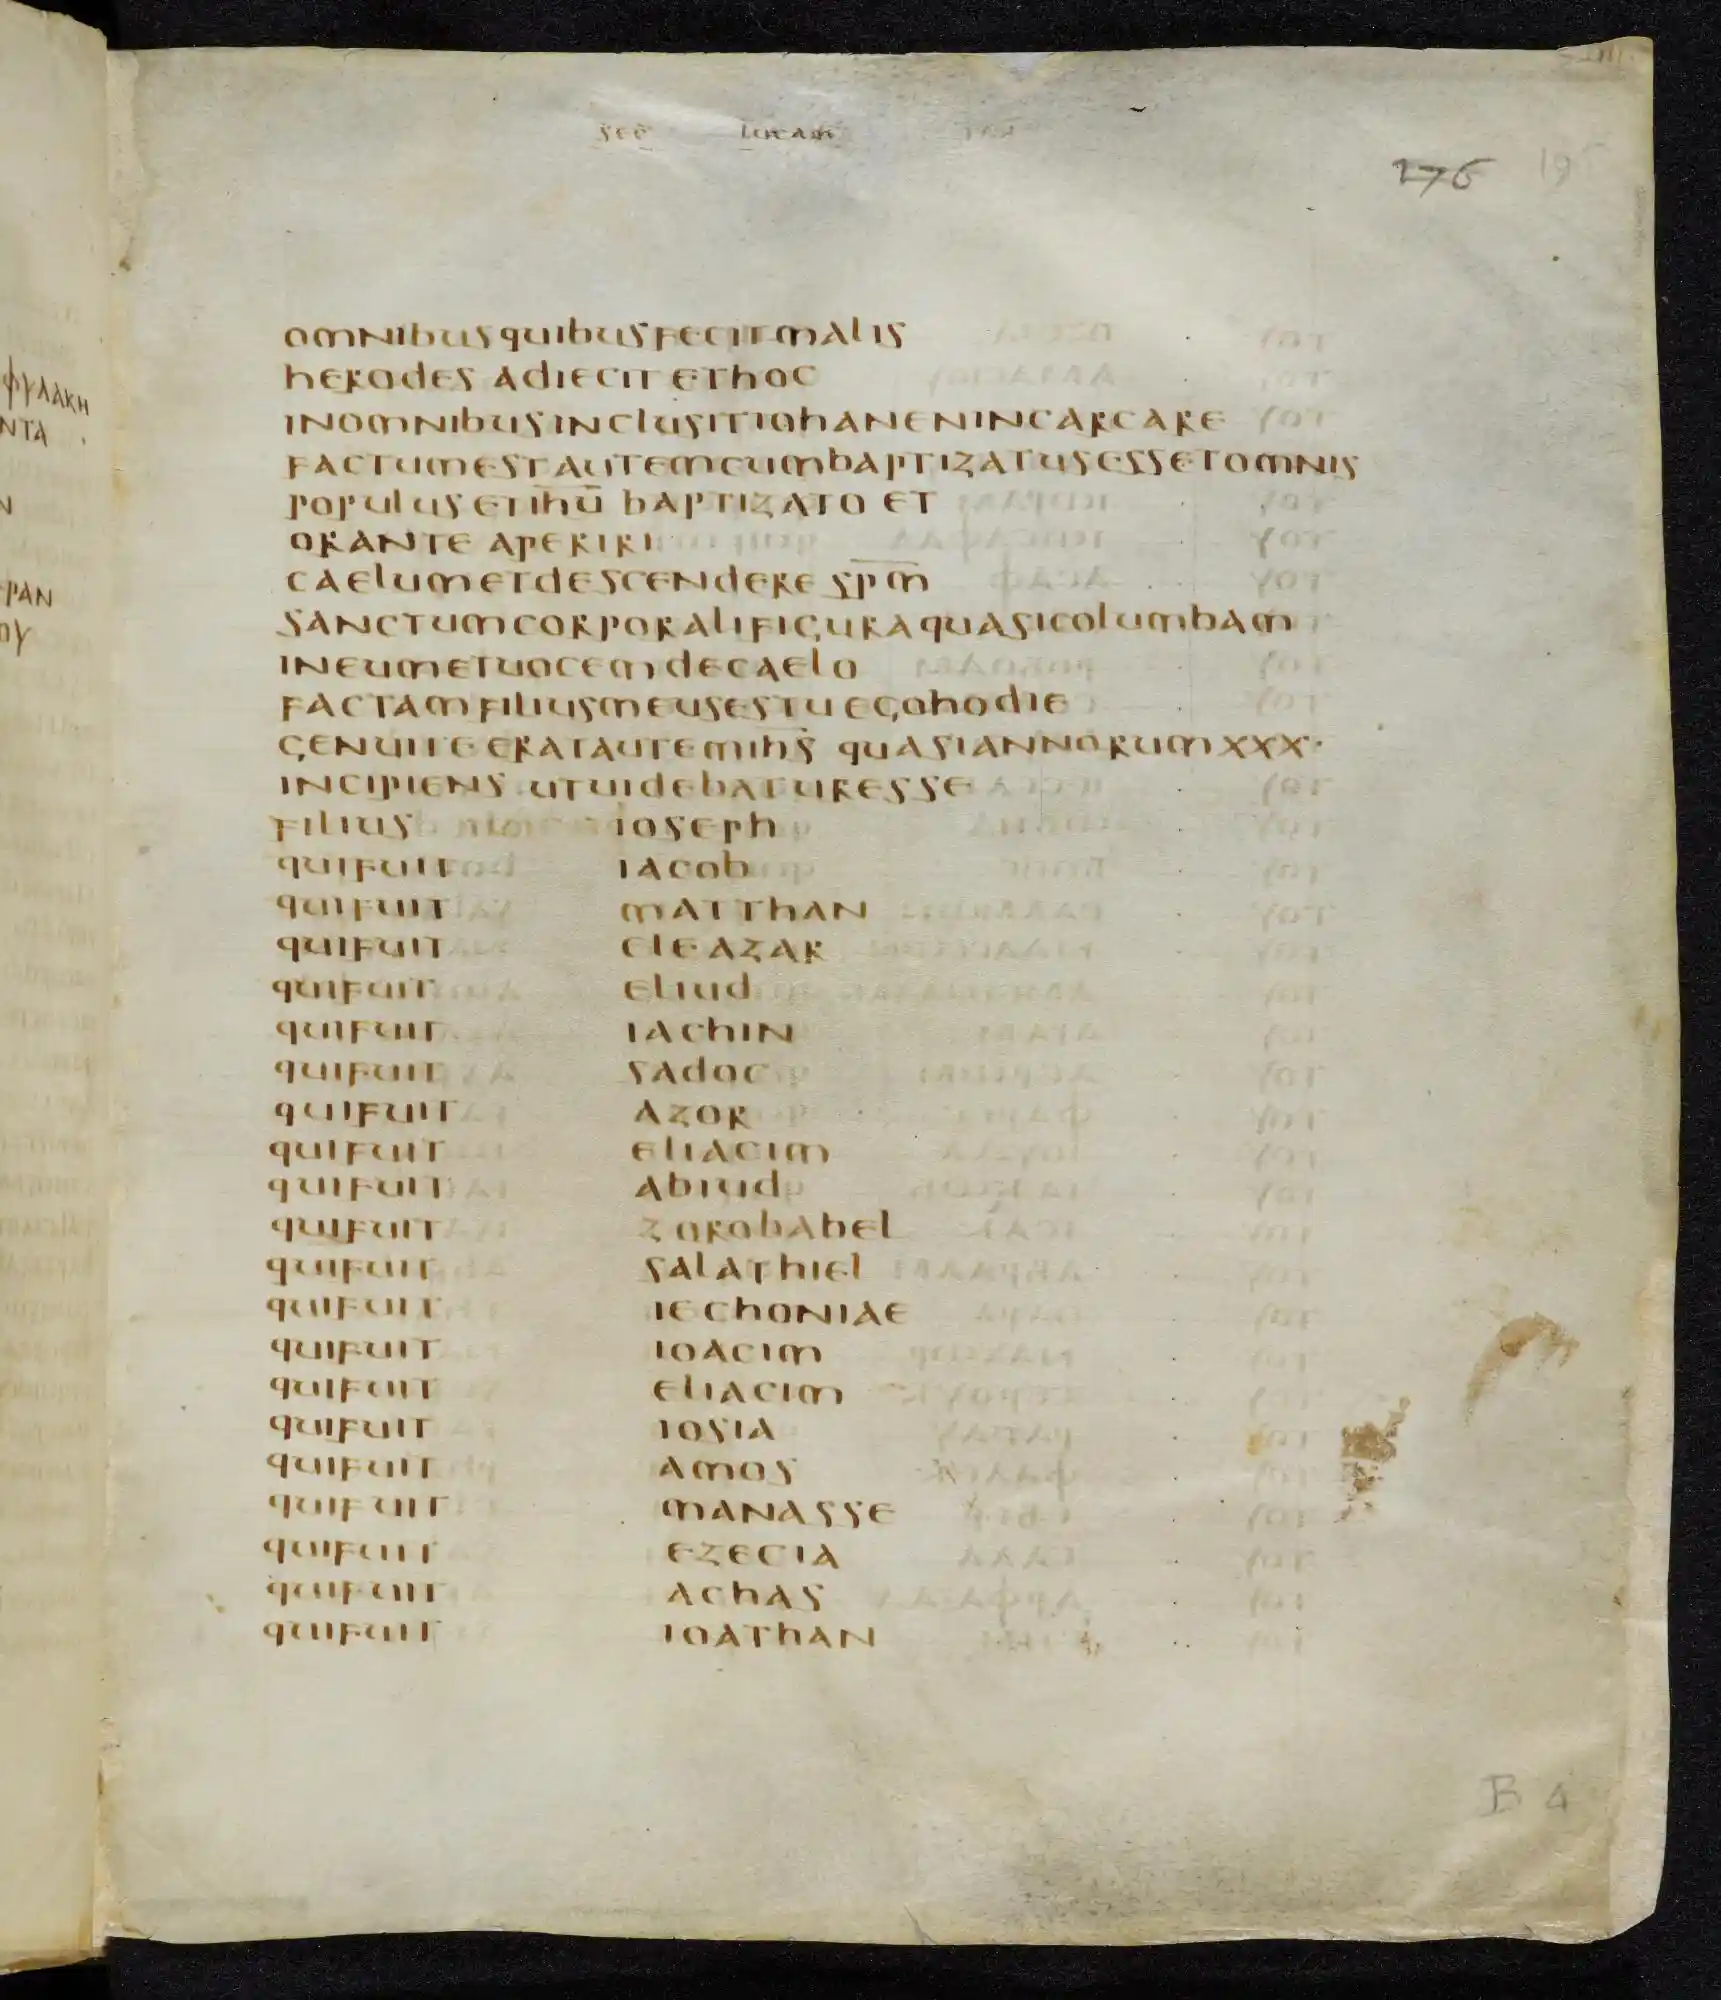 SEC̅ LUCAM
276 195
OMNIBUSQUIBUSFECITMALIS
HERODES ADIECIT ETHOC
INOMNIBUSINCLUSITIOHANENINCARCARE
FACTUMESTAUTEMCUMBAPTIZATUSESSETOMNIS
POPULUSETIHU̅ BAPTIZATO ET
ORANTE APERIRI
CAELUMETDESCENDERE SP̅M̅
SANCTUMCORPORALIFIGURAQUASICOLUMBAM
INEUMETUOCEMDECAELO
FACTAMFILIUSMEUSESTUEGOHODIE
GENUITEERATAUTEMIHS̅ QUASIANNORUMXXX·
INCIPIENS UTUIDEBATURESSE
FILIUS IOSEPH
QUIFUIT IACOB
QUIFUIT MATTHAN
QUIFUIT ELEAZAR
QUIFUIT ELIUD
QUIFUIT IACHIN
QUIFUIT SADOC
QUIFUIT AZOR
QUIFUIT ELIACIM
QUIFUIT ABIUD
QUIFUIT ZOROBABEL
QUIFUIT SALATHIEL
QUIFUIT IECHONIAE
QUIFUIT IOACIM
QUIFUIT ELIACIM
QUIFUIT IOSIA
QUIFUIT AMOS
QUIFUIT MANASSE
QUIFUIT EZECIA
QUIFUIT ACHAS
QUIFUIT IOATHAN
B 4
ΦΥΛΑΚΗ
ΝΤΑ
Ν
ΡΑΝ
ΟΥ